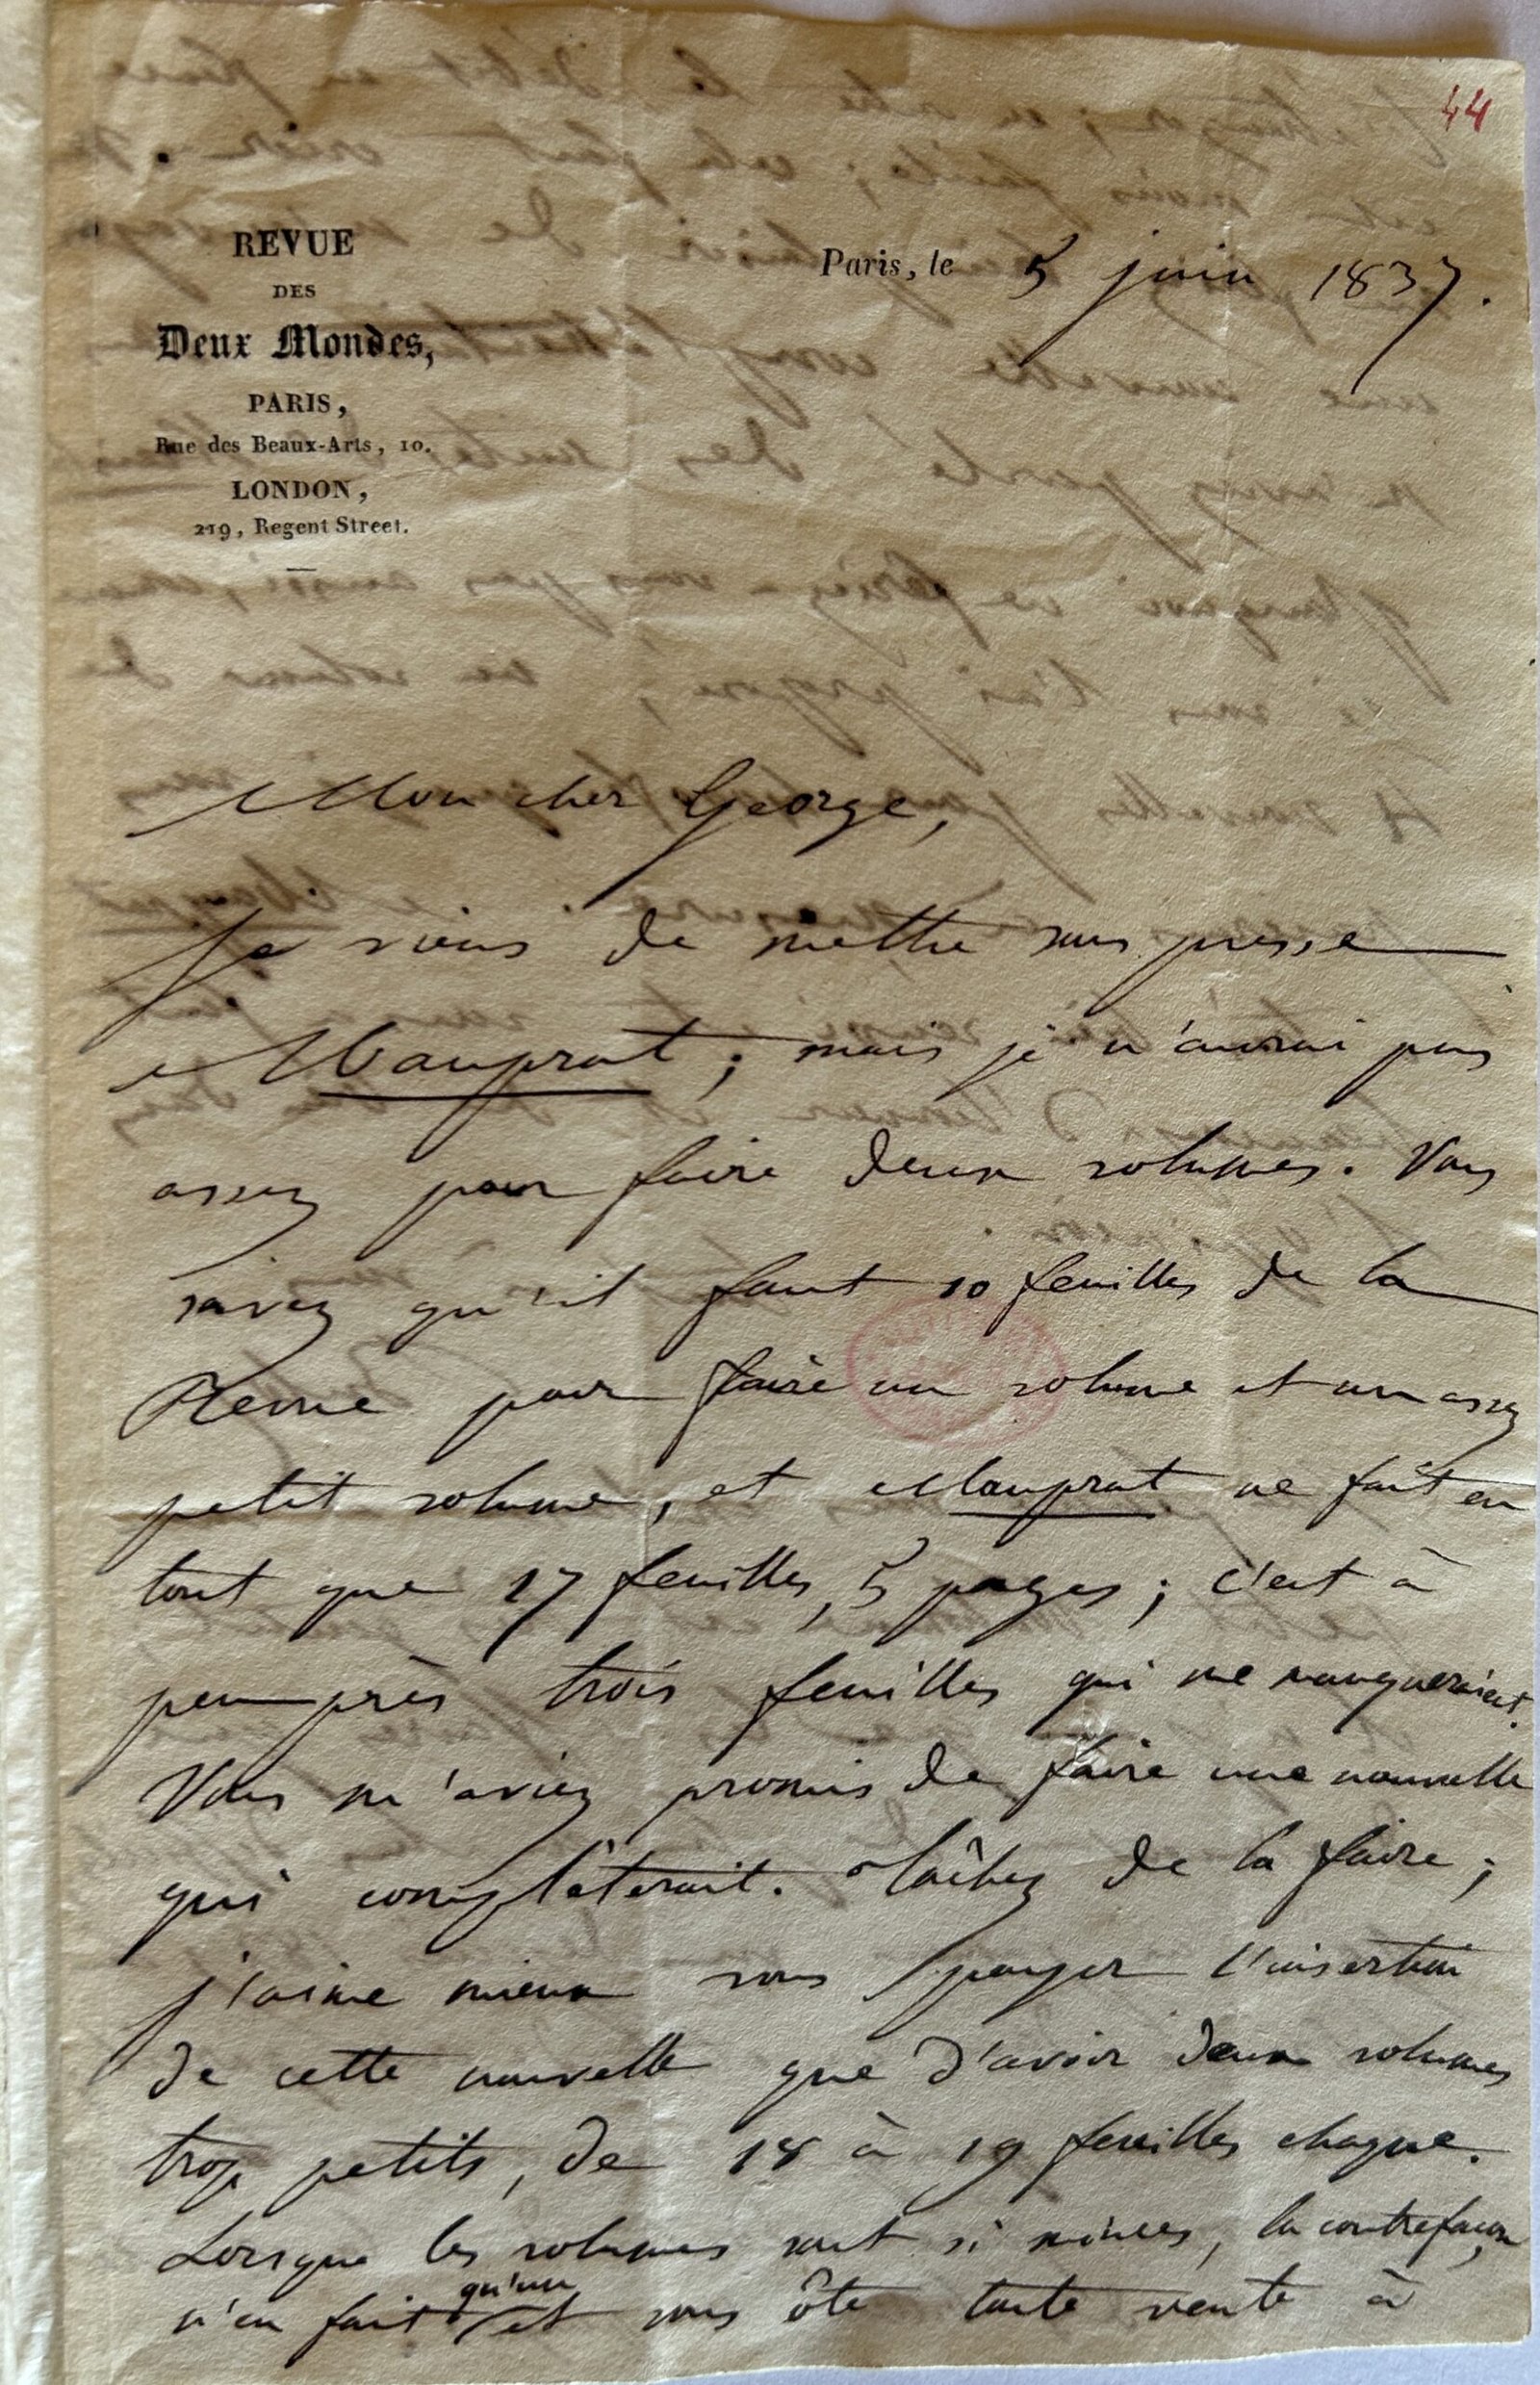 44
REVUE
DES
Deux Mondes,
PARIS,
Rue des Beaux-Arts, 10.
LONDON,
219, Regent Street.
Paris, le 5 juin 1837.
Mon cher George,
Je viens de mettre sous presse
Mauprat ; mais je n'aurai pas
assez pour faire deux volumes. Vous
savez qu'il faut 10 feuilles de la
Revue pour faire un volume et un assez
petit volume, et Mauprat ne fait en
tout que 17 feuilles, 5 pages ; c'est à
peu près trois feuilles qui me manqueraient.
Vous m'aviez promis de faire une nouvelle
qui complèterait. Tâchez de la faire ;
j'aime mieux vous payer l'insertion
de cette nouvelle que d'avoir deux volumes
trop petits, de 18 à 19 feuilles chaque.
Lorsque les volumes sont si minces, la contrefaçon
n'en fait qu'un et nous ôte toute vente à